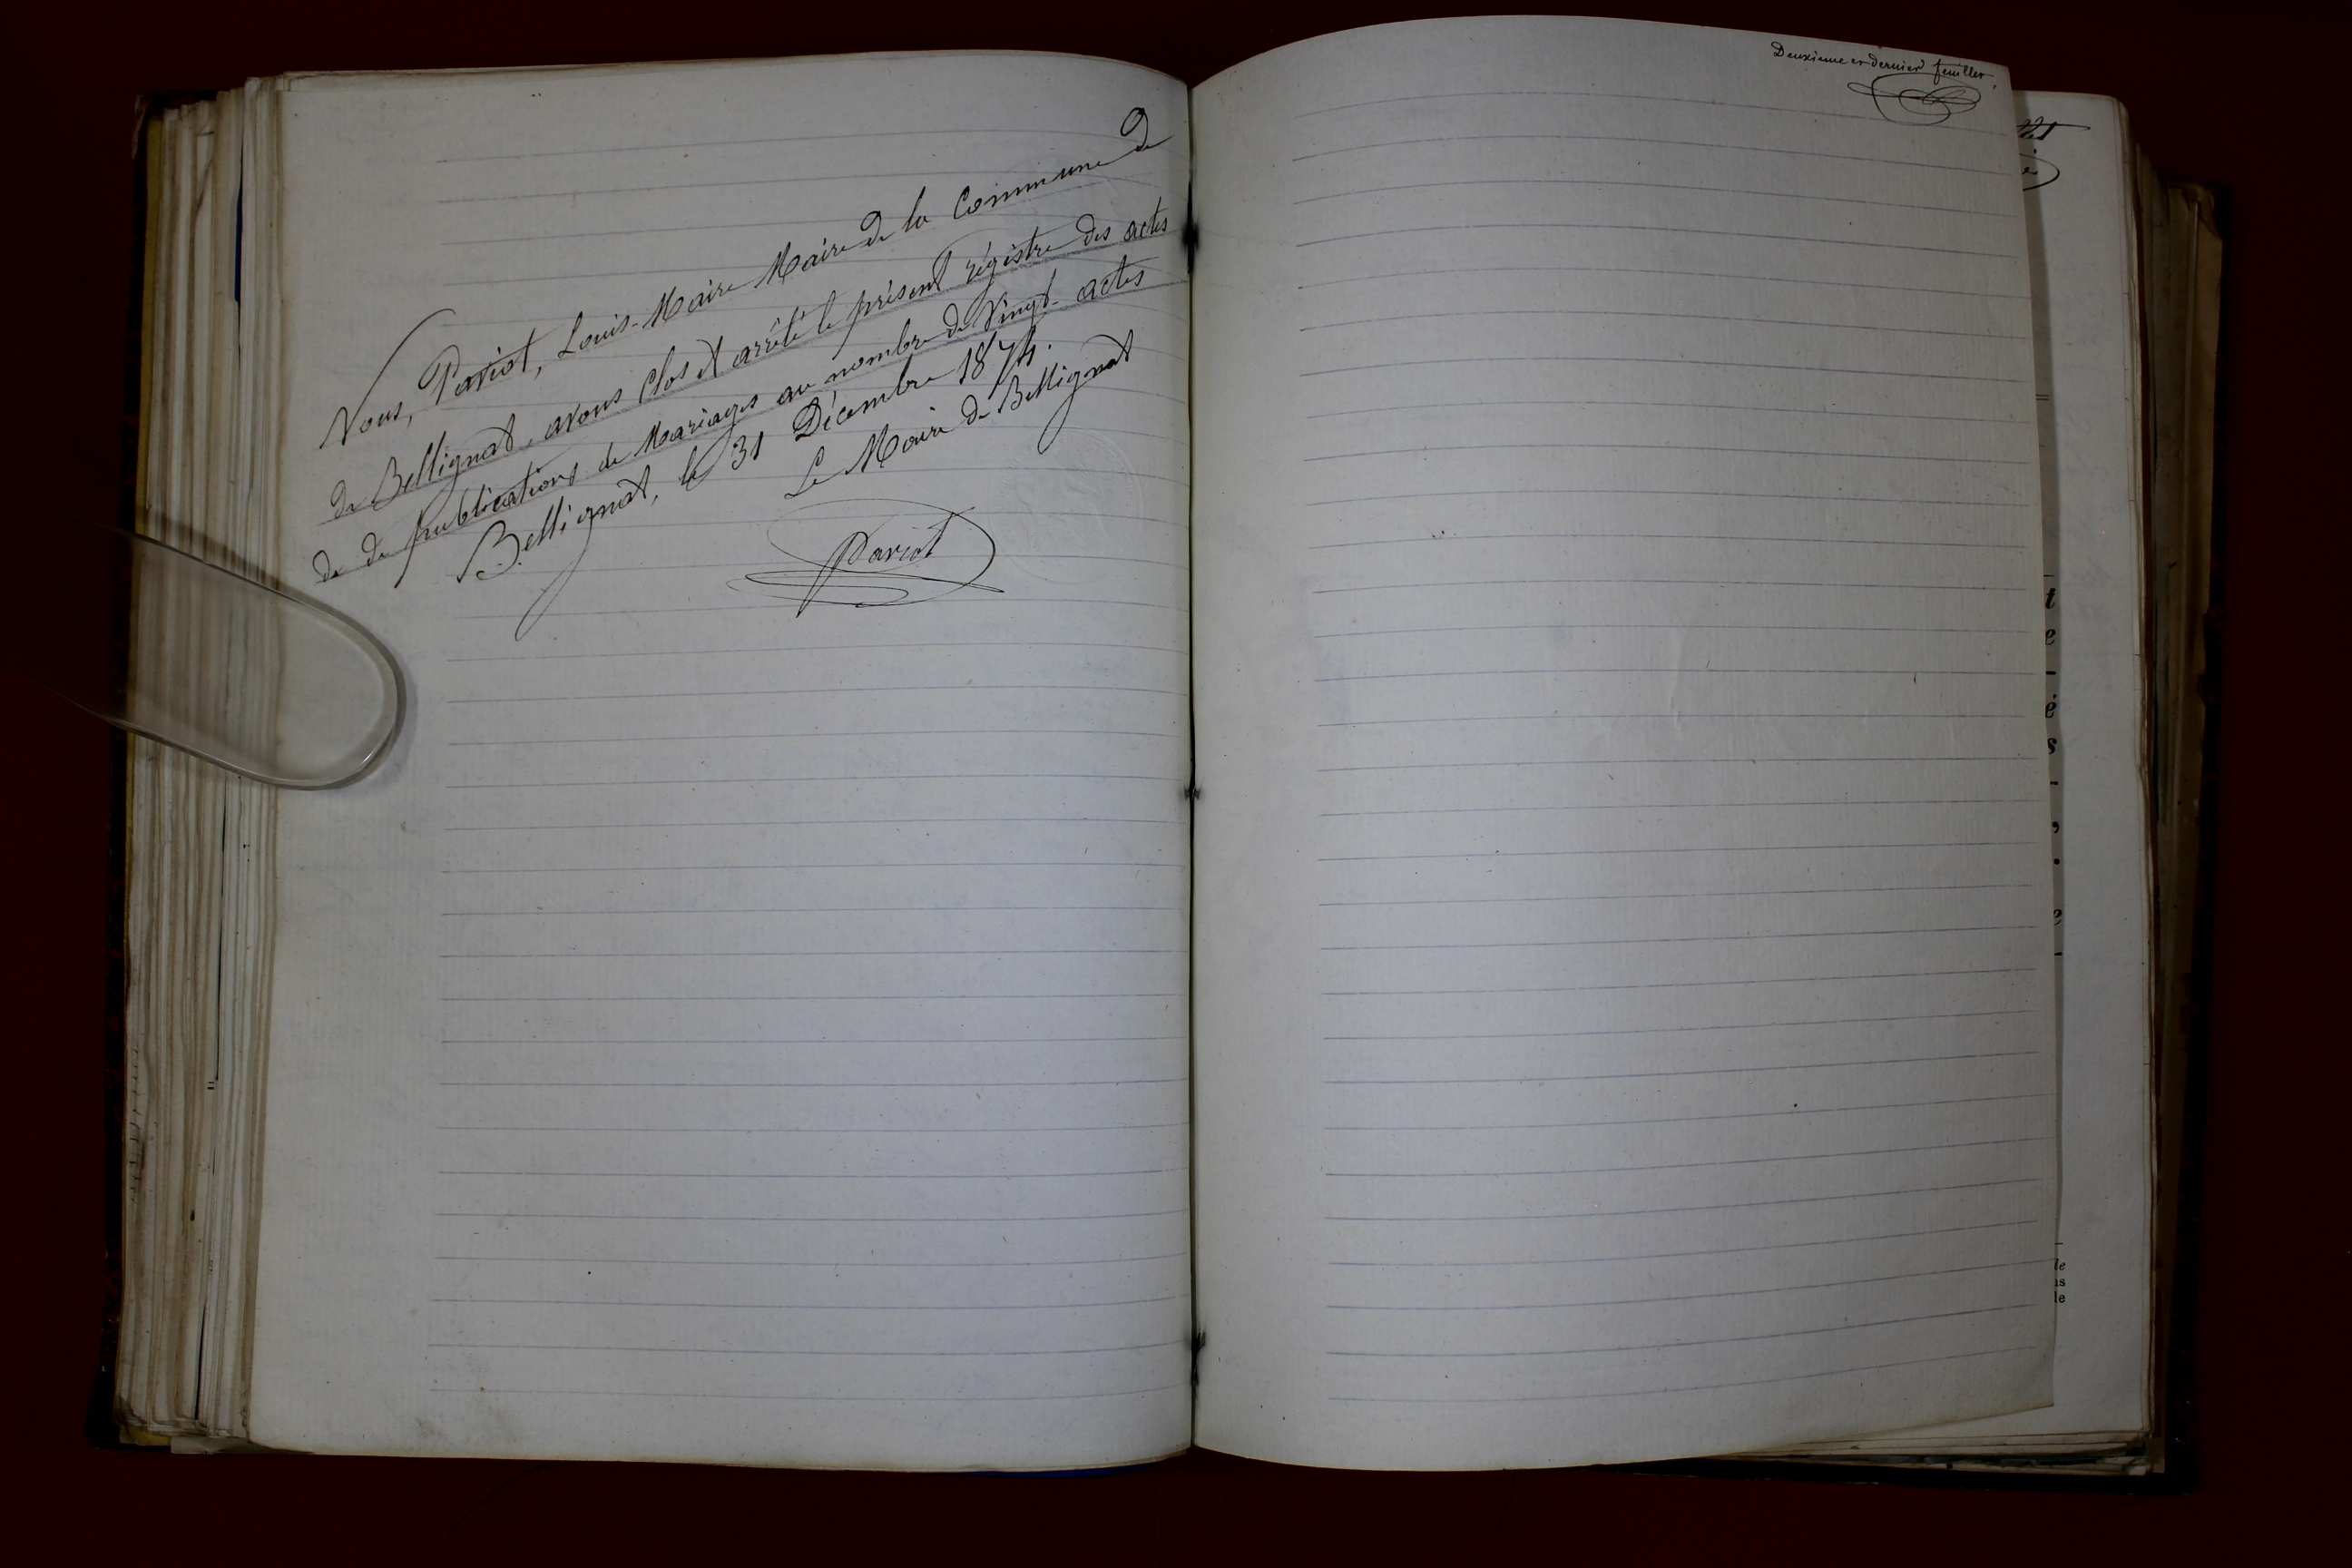 Nous, Pariot, Louis-Maire Maire de la Commune de
de Bellignat, avons clos et arrêté le présent régistre des actes
de de publications de Mariages au nombre de Vingt-actes
Bellignat, le 31 Décembre 1874.
Le Maire de Bellignat
Pariot
Deuxième et dernier feuillet